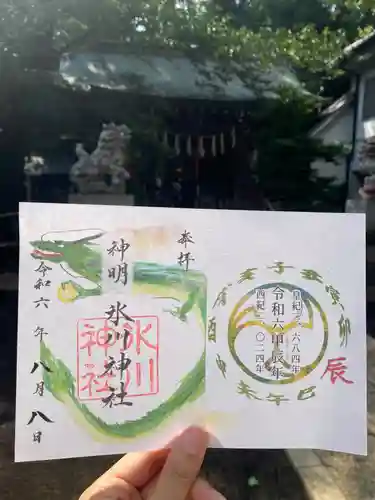 奉拝
神明 氷川神社
氷川神社
令和六年 八月八日
皇紀二六八四年
令和六甲辰年
西紀二〇二四年
子丑寅卯
辰
巳午未
酉